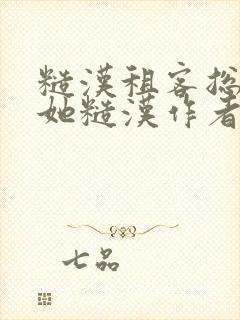 糙漢租客捴
她糙漢作者
七品